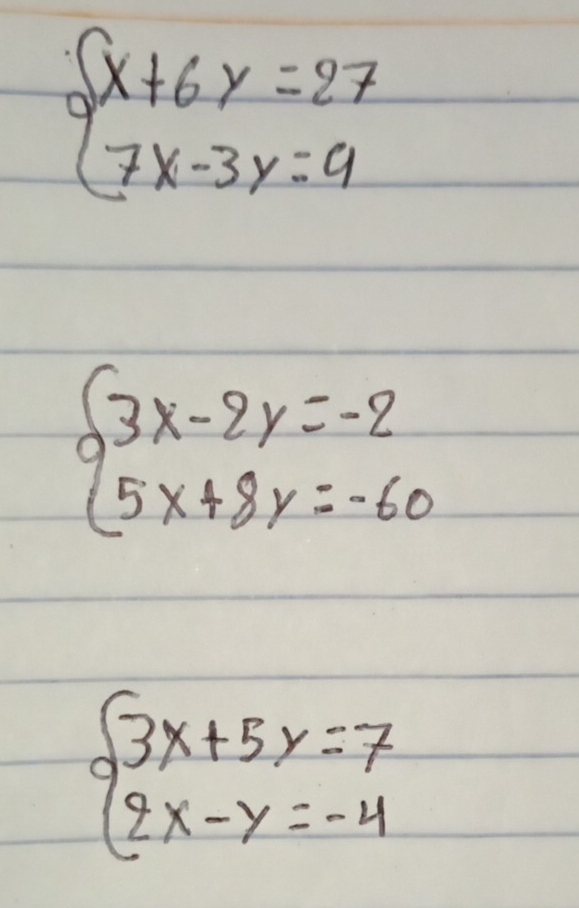 x+6y=27
7x-3y=9
3x-2y=-2
5x+8y=-60
3x+5y=7
2x-y=-4